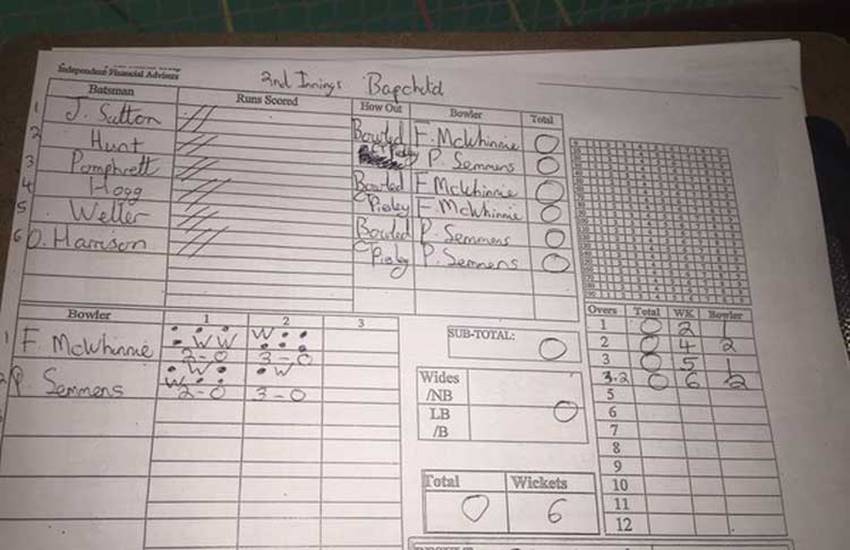 Independent Financial Advisers
2nd Innings Bapchild
Batsman Runs Scored How Out Bowler Total
1 J. Sutton // Bowled F. McWhinnie 0
2 Hunt // Ct P. Semmens 0
3 Pomphrett // Bowled F McWhinnie 0
4 Hogg // Ct Pixley F McWhinnie 0
5 Weller // Bowled P. Semmens 0
6 D. Harrison // Ct Pixley P. Semmens 0
Bowler 1 2 3
1 F. McWhinnie • • • • W W W • • • • •
2-0 3-0
2 P. Semmens • W • W • • • W
2-0 3-0
SUB-TOTAL: 0
Wides
/NB
LB
/B
0
Total Wickets
0 6
Overs Total WK Bowler
1 0 2 1
2 0 4 2
3 0 5 1
3.2 0 6 2
5
6
7
8
9
10
11
12